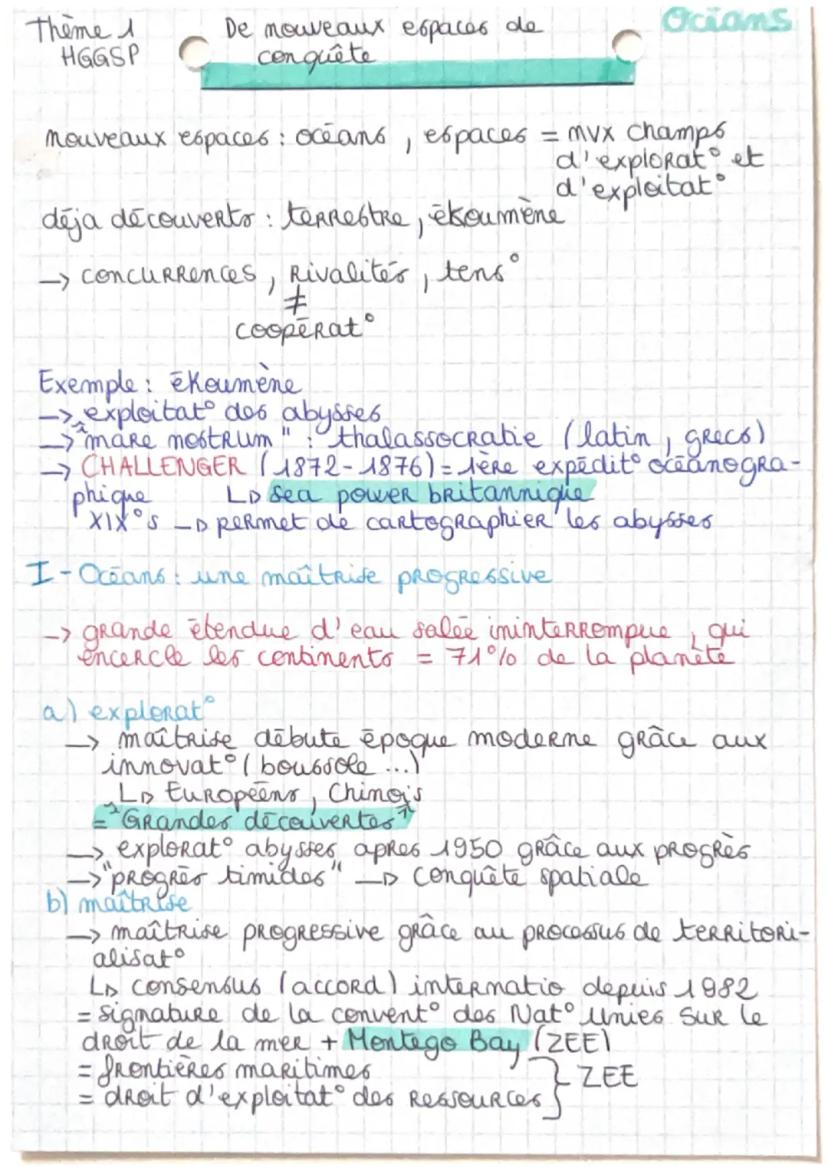 Thème 1
HGGSP
De nouveaux espaces de
conquête
Océans
nouveaux espaces : océans, espaces = nvx champs
d'explorat° et
d'exploitat°
déja découverts : terrestre, ēkoumène
→ concurrences, rivalités, tens°
≠
coopérat°
Exemple : ēkoumène
→ exploitat° des abysses
→ "mare nostrum" : thalassocratie (latin, grecs)
→ CHALLENGER (1872-1876) = 1ère expédit° océanogra-
phique ↳ sea power britannique
XIX°s → permet de cartographier les abysses
I - Océans : une maîtrise progressive
→ grande étendue d'eau salée ininterrompue, qui
encercle les continents = 71% de la planète
a) explorat°
→ maîtrise débute époque moderne grâce aux
innovat° (boussole ...)
↳ Européens, Chinois
= "Grandes découvertes"
→ explorat° abysses apres 1950 grâce aux progrès
→ "progrès timides" → conquête spatiale
b) maîtrise
→ maîtrise progressive grâce au processus de territori-
alisat°
↳ consensus (accord) internatio depuis 1982
= signature de la convent° des Nat° Unies sur le
droit de la mer + Montego Bay (ZEE)
= frontières maritimes
= droit d'exploitat° des ressources } ZEE